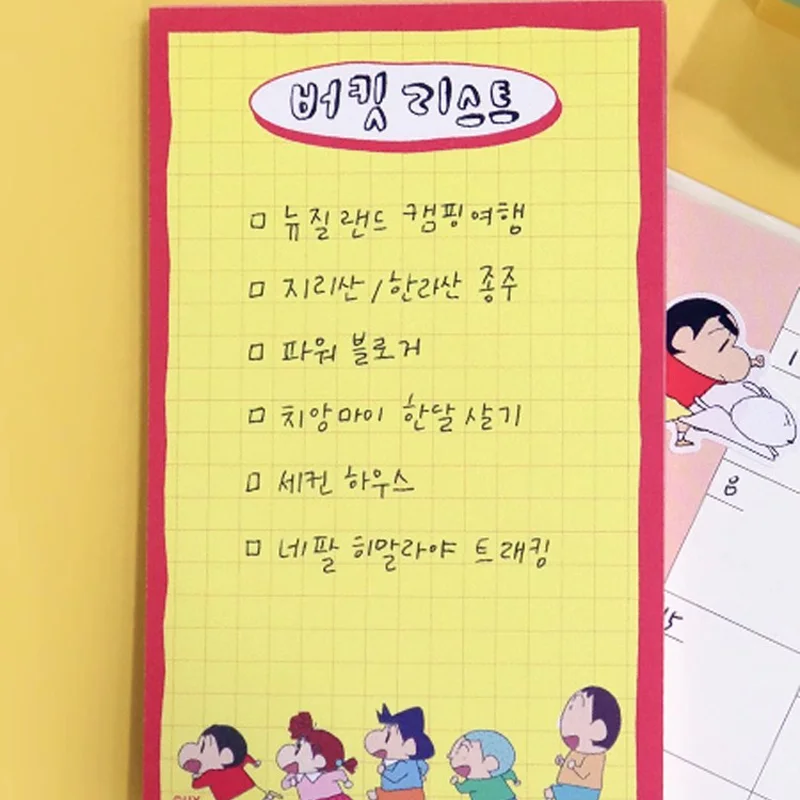 버킷 리스트
□ 뉴질랜드 캠핑여행
□ 지리산/한라산 종주
□ 파워 블로거
□ 치앙마이 한달살기
□ 세컨 하우스
□ 네팔 히말라야 트래킹
1
8
15